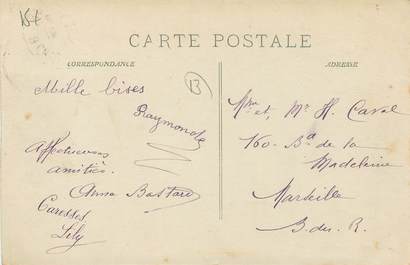 15+
CARTE POSTALE
CORRESPONDANCE
Mille bises
Raymonde
Affectueuses
amitiés
Anna Bastard
Caresses
Lily
13
ADRESSE
Mme et Mr H. Caval
160 - Bd de la
Madeleine
Marseille
B. du. R.